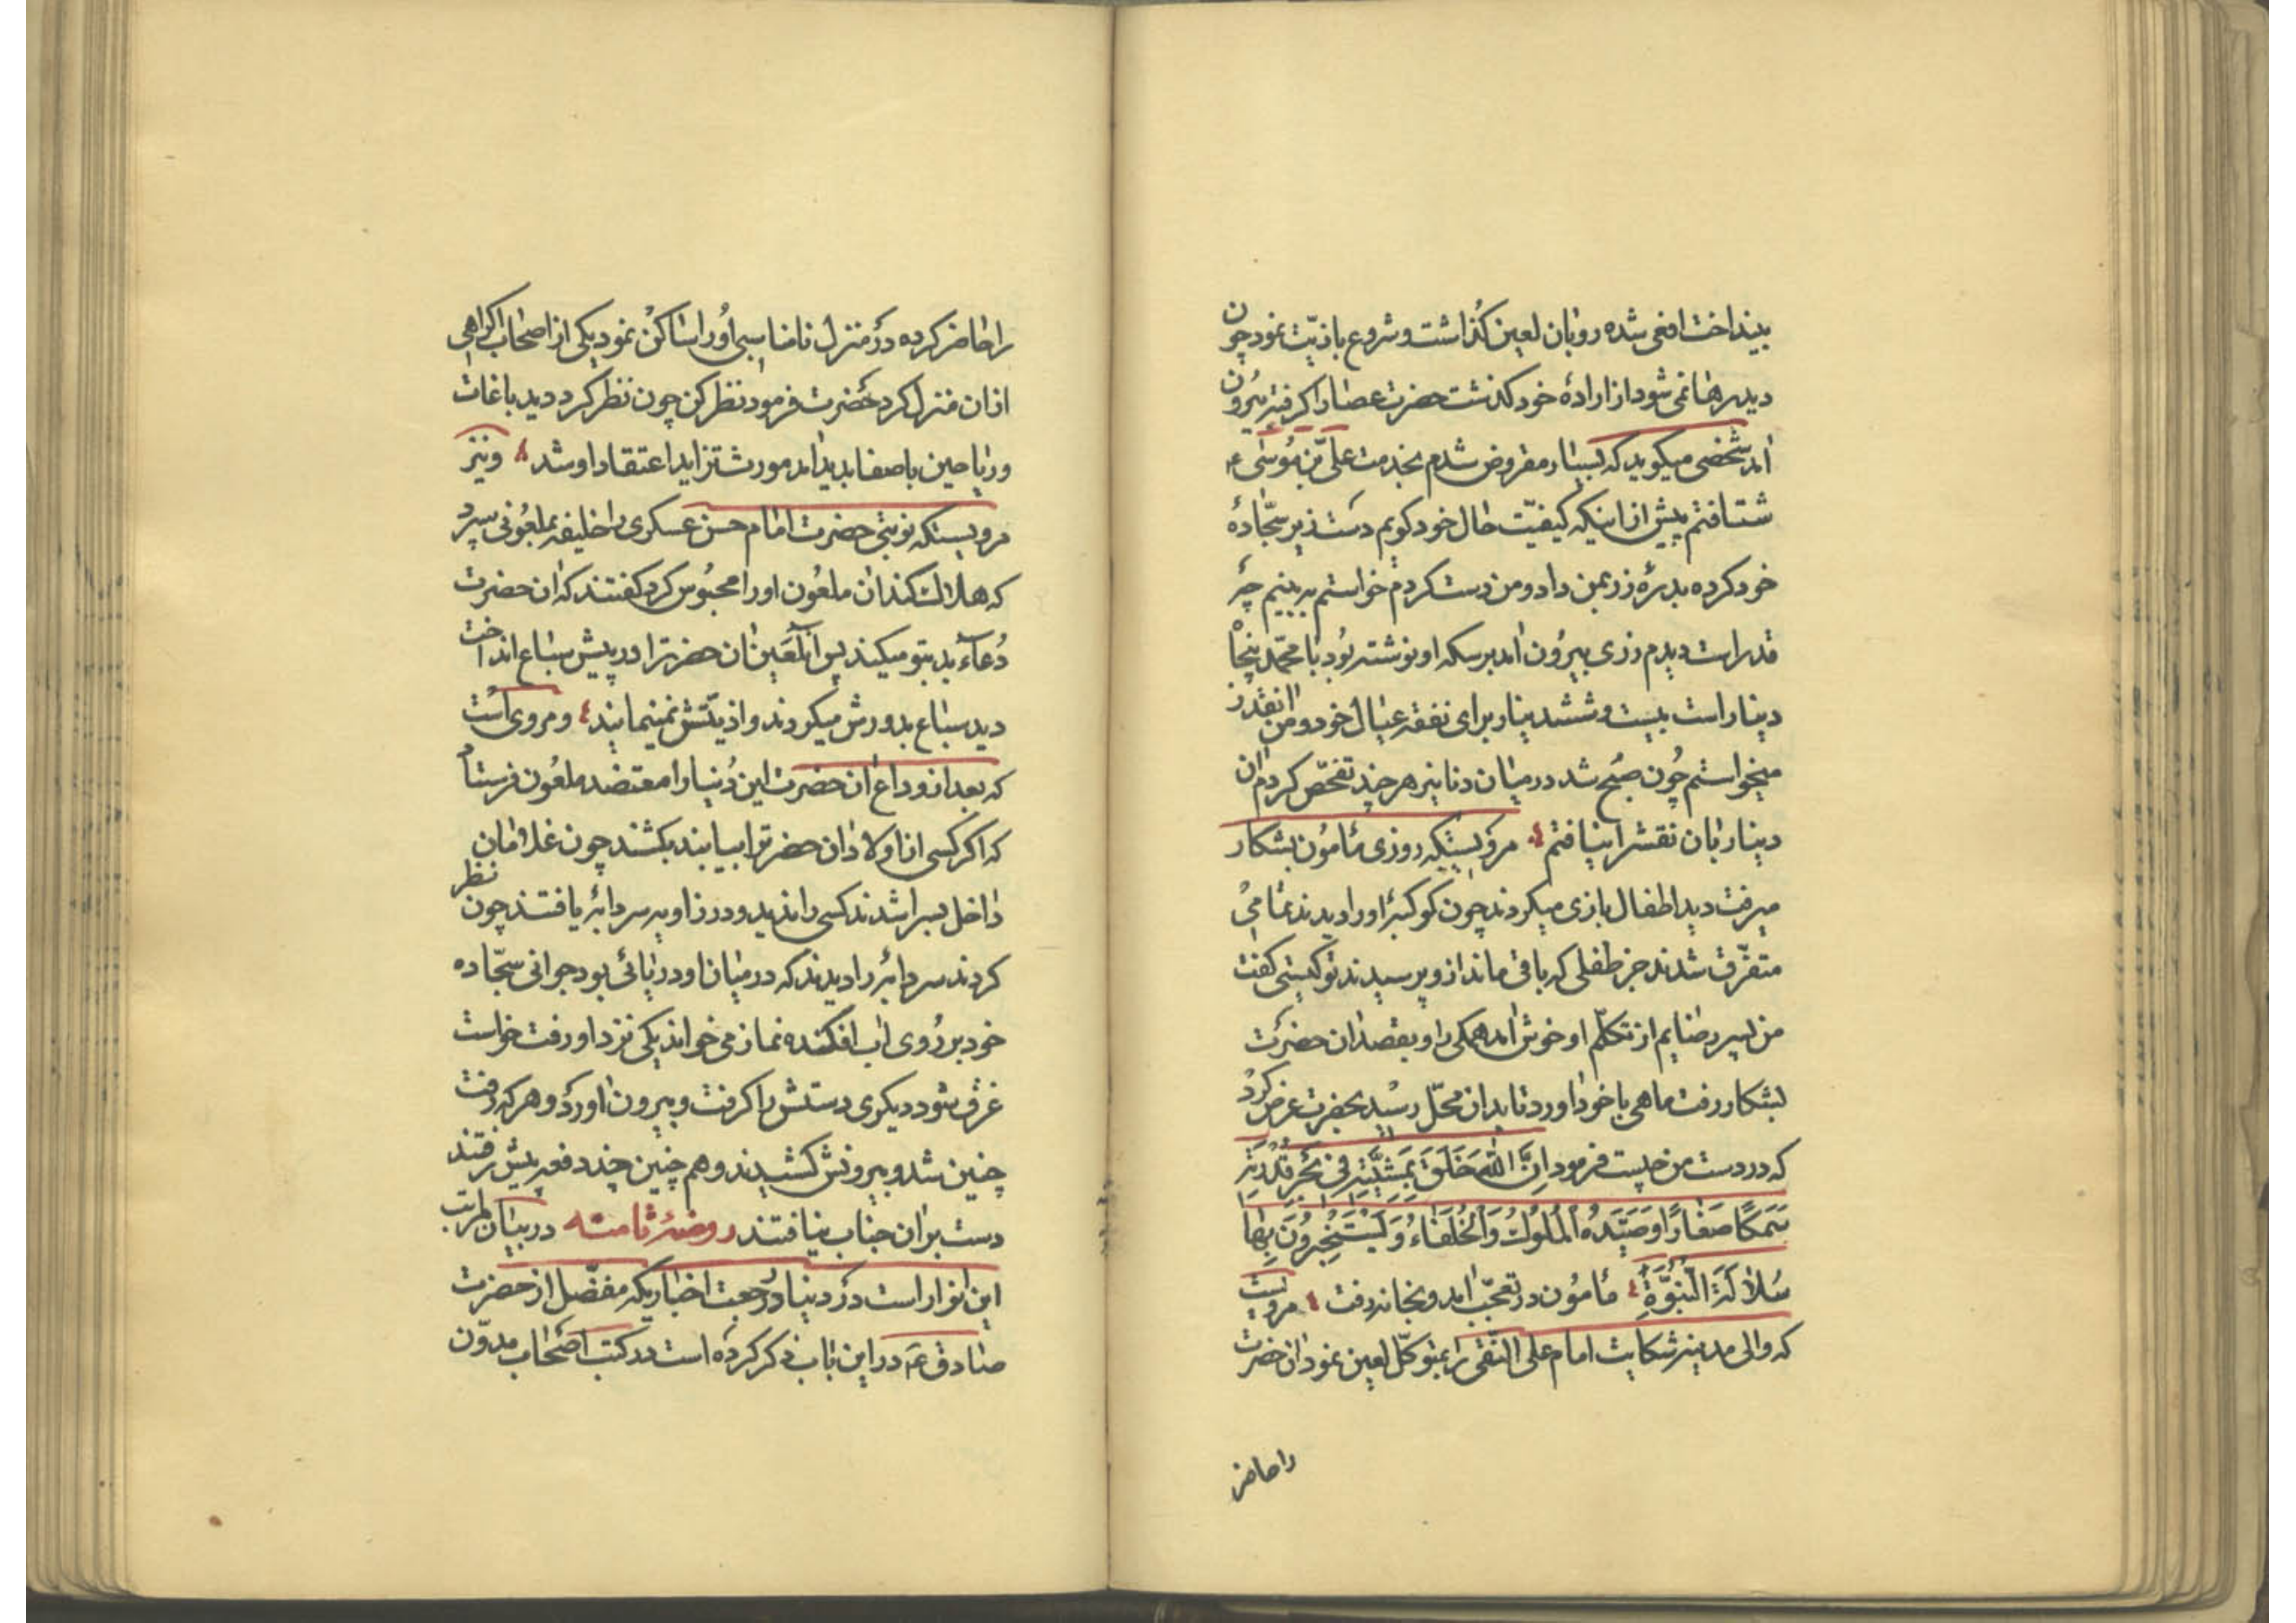 بینداخت افعی شده رو بان لعین کذاشت و شروع باذیّت نمود چون
دید رها نمی شود از ارادهٔ خود کذشت حضرت عصا را کرفته بیرون
امد شخصی میکوید که بسیار مقروض شدم بخدمت علیّ بن موُسیٰ ع
شتافتم پیش از اینکه کیفیّت حال خود کویم دست در زیر سجّادهٔ
خود کرده بدرهٔ زر بمن داد و من دست کردم خواستم به بینم چه
قدر است دیدم زری بیروُن امد بر سکه او نوشته بوُد یا محمّد پنجاه
دینار است بیست و شش دینار برای نفقه عیال خود و من انقدر
میخواستم چُون صبُح شد در میان دنانیر هر چند تفحّص کردم ان
دینار بان نقش را نیافتم مرویستکه روزی مأمون بشکار
میرفت دید اطفال بازی میکردند چون کوکبهٔ او را دیدند تمامی
متفرّق شدند جز طفلی که باقی ماند از و پرسیدند تو کیستی کفت
من پسر رضایم از تکلّم او خوش امد همکی را و بقصد ان حضرت
بشکار رفت ماهی با خود اورد تا بدان محلّ رسید بحضرت عرض کرد
که در دست من چیست فرمود اِنَّ اللّٰهَ خَلَقَ بِمَشِیَّتِهِ فی بَحْرِ قُدْرَتِهِ
سَمَکًا صَغٰارًا وَصَیَّدَهُ الْملُوُکُ وَالْخُلَفٰاءُ وَ یَسْتَخْبِروُنَ بِهٰا
سُلاٰلَةَ النُّبُوَّةِ مأمُون در تعجّب امد و بخانه رفت مرویست
که والی مدینه شکایت امام علی النّقی را بمتوکّل لعین نمود ان حضرت
را حاضر
را حاضر کرده در منزل نامناسبی اوُ را ساکن نمود یکی از اصحاب اکراهی
از ان منزل کرد حَضرت فرمود نظر کن چون نظر کرد دید باغات
و ریاحین با صفا پدید امد مورث تزاید اعتقاد او شد و نیز
مرویستکه نوبتی حضرت امام حسن عسکری را خلیفه بملعُونی سپرد
که هلاک کند ان ملعُون او را محبُوس کرد کفتند که ان حضرت
دُعاء بد بتو میکند پس ان لَعین ان حضرترا در پیش سباع انداخت
دید سباع بدورش میکردند و اذیّتش نمینمایند و مروی است
که بعد از وداع ان حضرت این دُنیا را معتضد ملعُون فرستاد
که اکر کسی از اولاد ان حضرترا بیابند بکشند چون غلامان
داخل سرا شدند کسی را ندیدند و در زاویه سردابهٔ یافتند چون نظر
کردند سردابهٔ را دیدند که در میان او دریائی بود جوانی سجّاده
خود بر رُوی اب افکنده نماز می خواند یکی نزد او رفت خواست
غرق شود دیکری دستش را کرفت و بیرون اورد و هر که رفت
چنین شد و بیرونش کشیدند و هم چنین چند دفعه پیش رفتند
دست بر ان جناب نیافتند روضهٔ ثامنه در بیان مراتب
این انوار است در دنیا و رجعت اخباریکه مفصّل از حضرت
صادق عَ در این باب ذکر کرده است در کتب اصحاب مدوّن